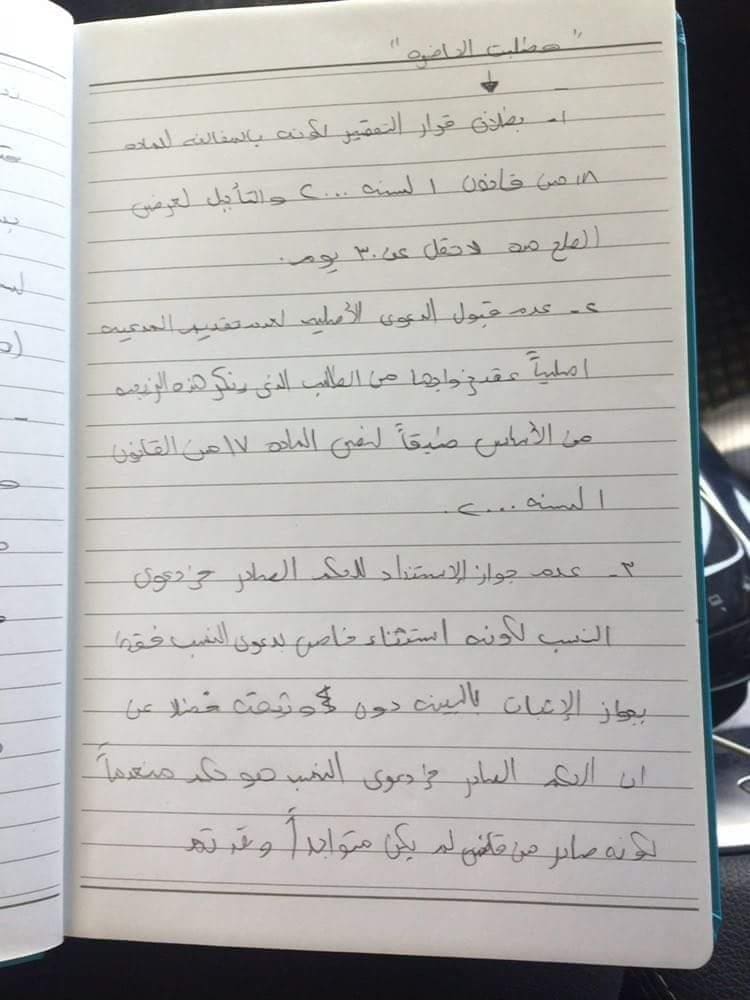 "مطلبت الحاضره"
١- بطلان قرار التقرير لكونه بالمخالفه للماده
١٨ من قانون ١ لسنه ٢٠٠٠ والتأجيل لعرض
الصلح مده لا تقل عن ٣٠ يوم.
٢- عدم قبول الدعوى الأصليه لعدم تقديم المدعيه
اصلياً عقد زواجها من الطالب الذى ينكر هذه الزيجه
من الأساس طبقاً لنص الماده ١٧ من القانون
١ لسنه ٢٠٠٠.
٣- عدم جواز الإستناد للحكم الصادر في دعوى
النسب لكونه استثناء خاص بدعوى النسب فقط
بجواز الإثبات بالبينه دون وثيقه فضلا عن
ان الحكم الصادر في دعوى النسب هو حكم منعدماً
لكونه صادر من قاضى لم يكن متواجداً وقد تم